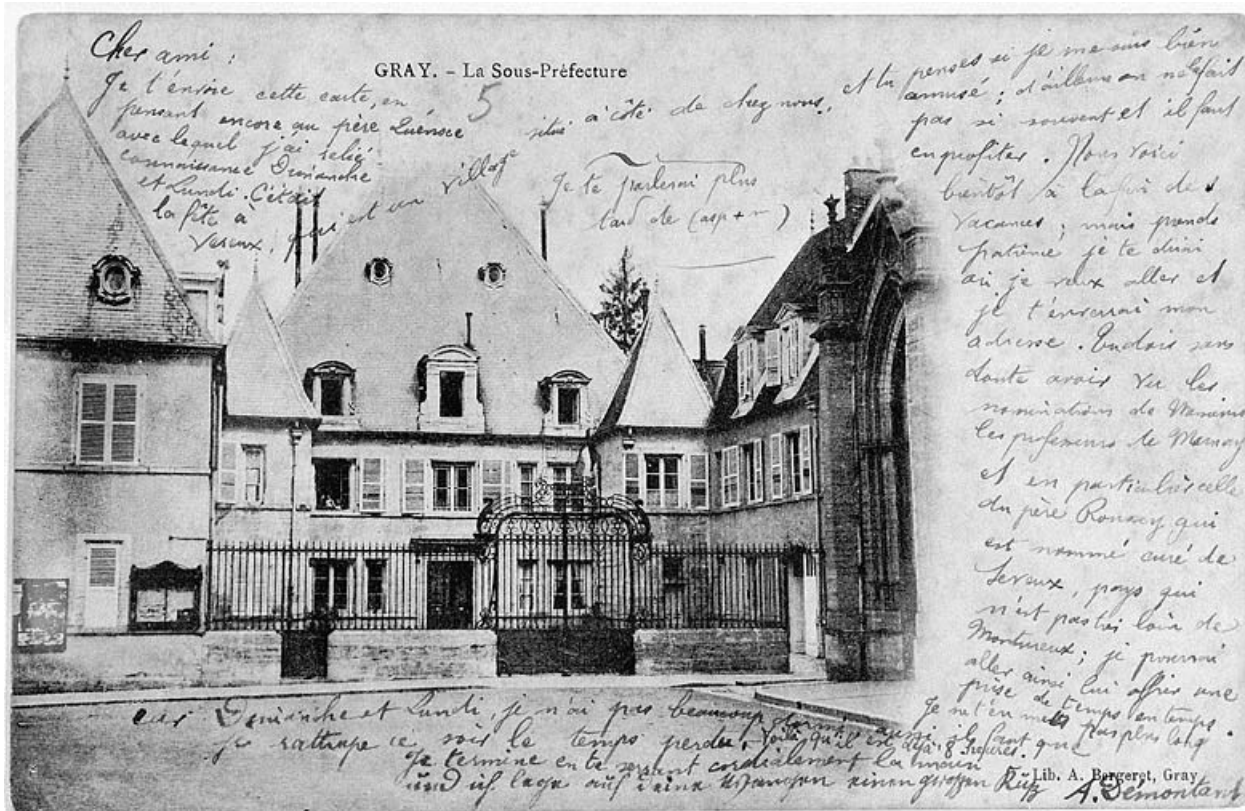 GRAY. - La Sous-Préfecture
5
Cher ami :
Je t'envoie cette carte, en
pensant encore au père
avec lequel j'ai
connaissance Dimanche
et Lundi. C'était
la fête à
Vereux, qui est un village
situé à côté de chez nous, et tu penses si je me suis bien
amusé ; d'ailleurs on ne le fait
pas si souvent et il faut
en profiter. Nous voici
bientôt à la fin des
vacances ; mais prends
patience je te dirai
où je veux aller et
je t'enverrai mon
adresse. Tu dois sans
doute avoir vu les
nominations de Messieurs
les professeurs de Marnay
et en particulier celle
du père qui
est nommé curé de
Seveux, pays qui
n'est pas très loin de
Montureux ; je pourrai
aller ainsi lui offrir une
prise de temps en temps.
Je ne t'en mets pas plus long
car Dimanche et Lundi, je n'ai pas beaucoup dormi aussi il faut que
je rattrape ce soir le temps perdu. Voilà qu'il est déjà 8 heures.
Je termine en te serrant cordialement la main
und ich lege auf deine Wangen einen grossen Kuß
A. Demontant
Je te parlerai plus
tard de (asp + m)
5 - Lib. A. Bergeret, Gray